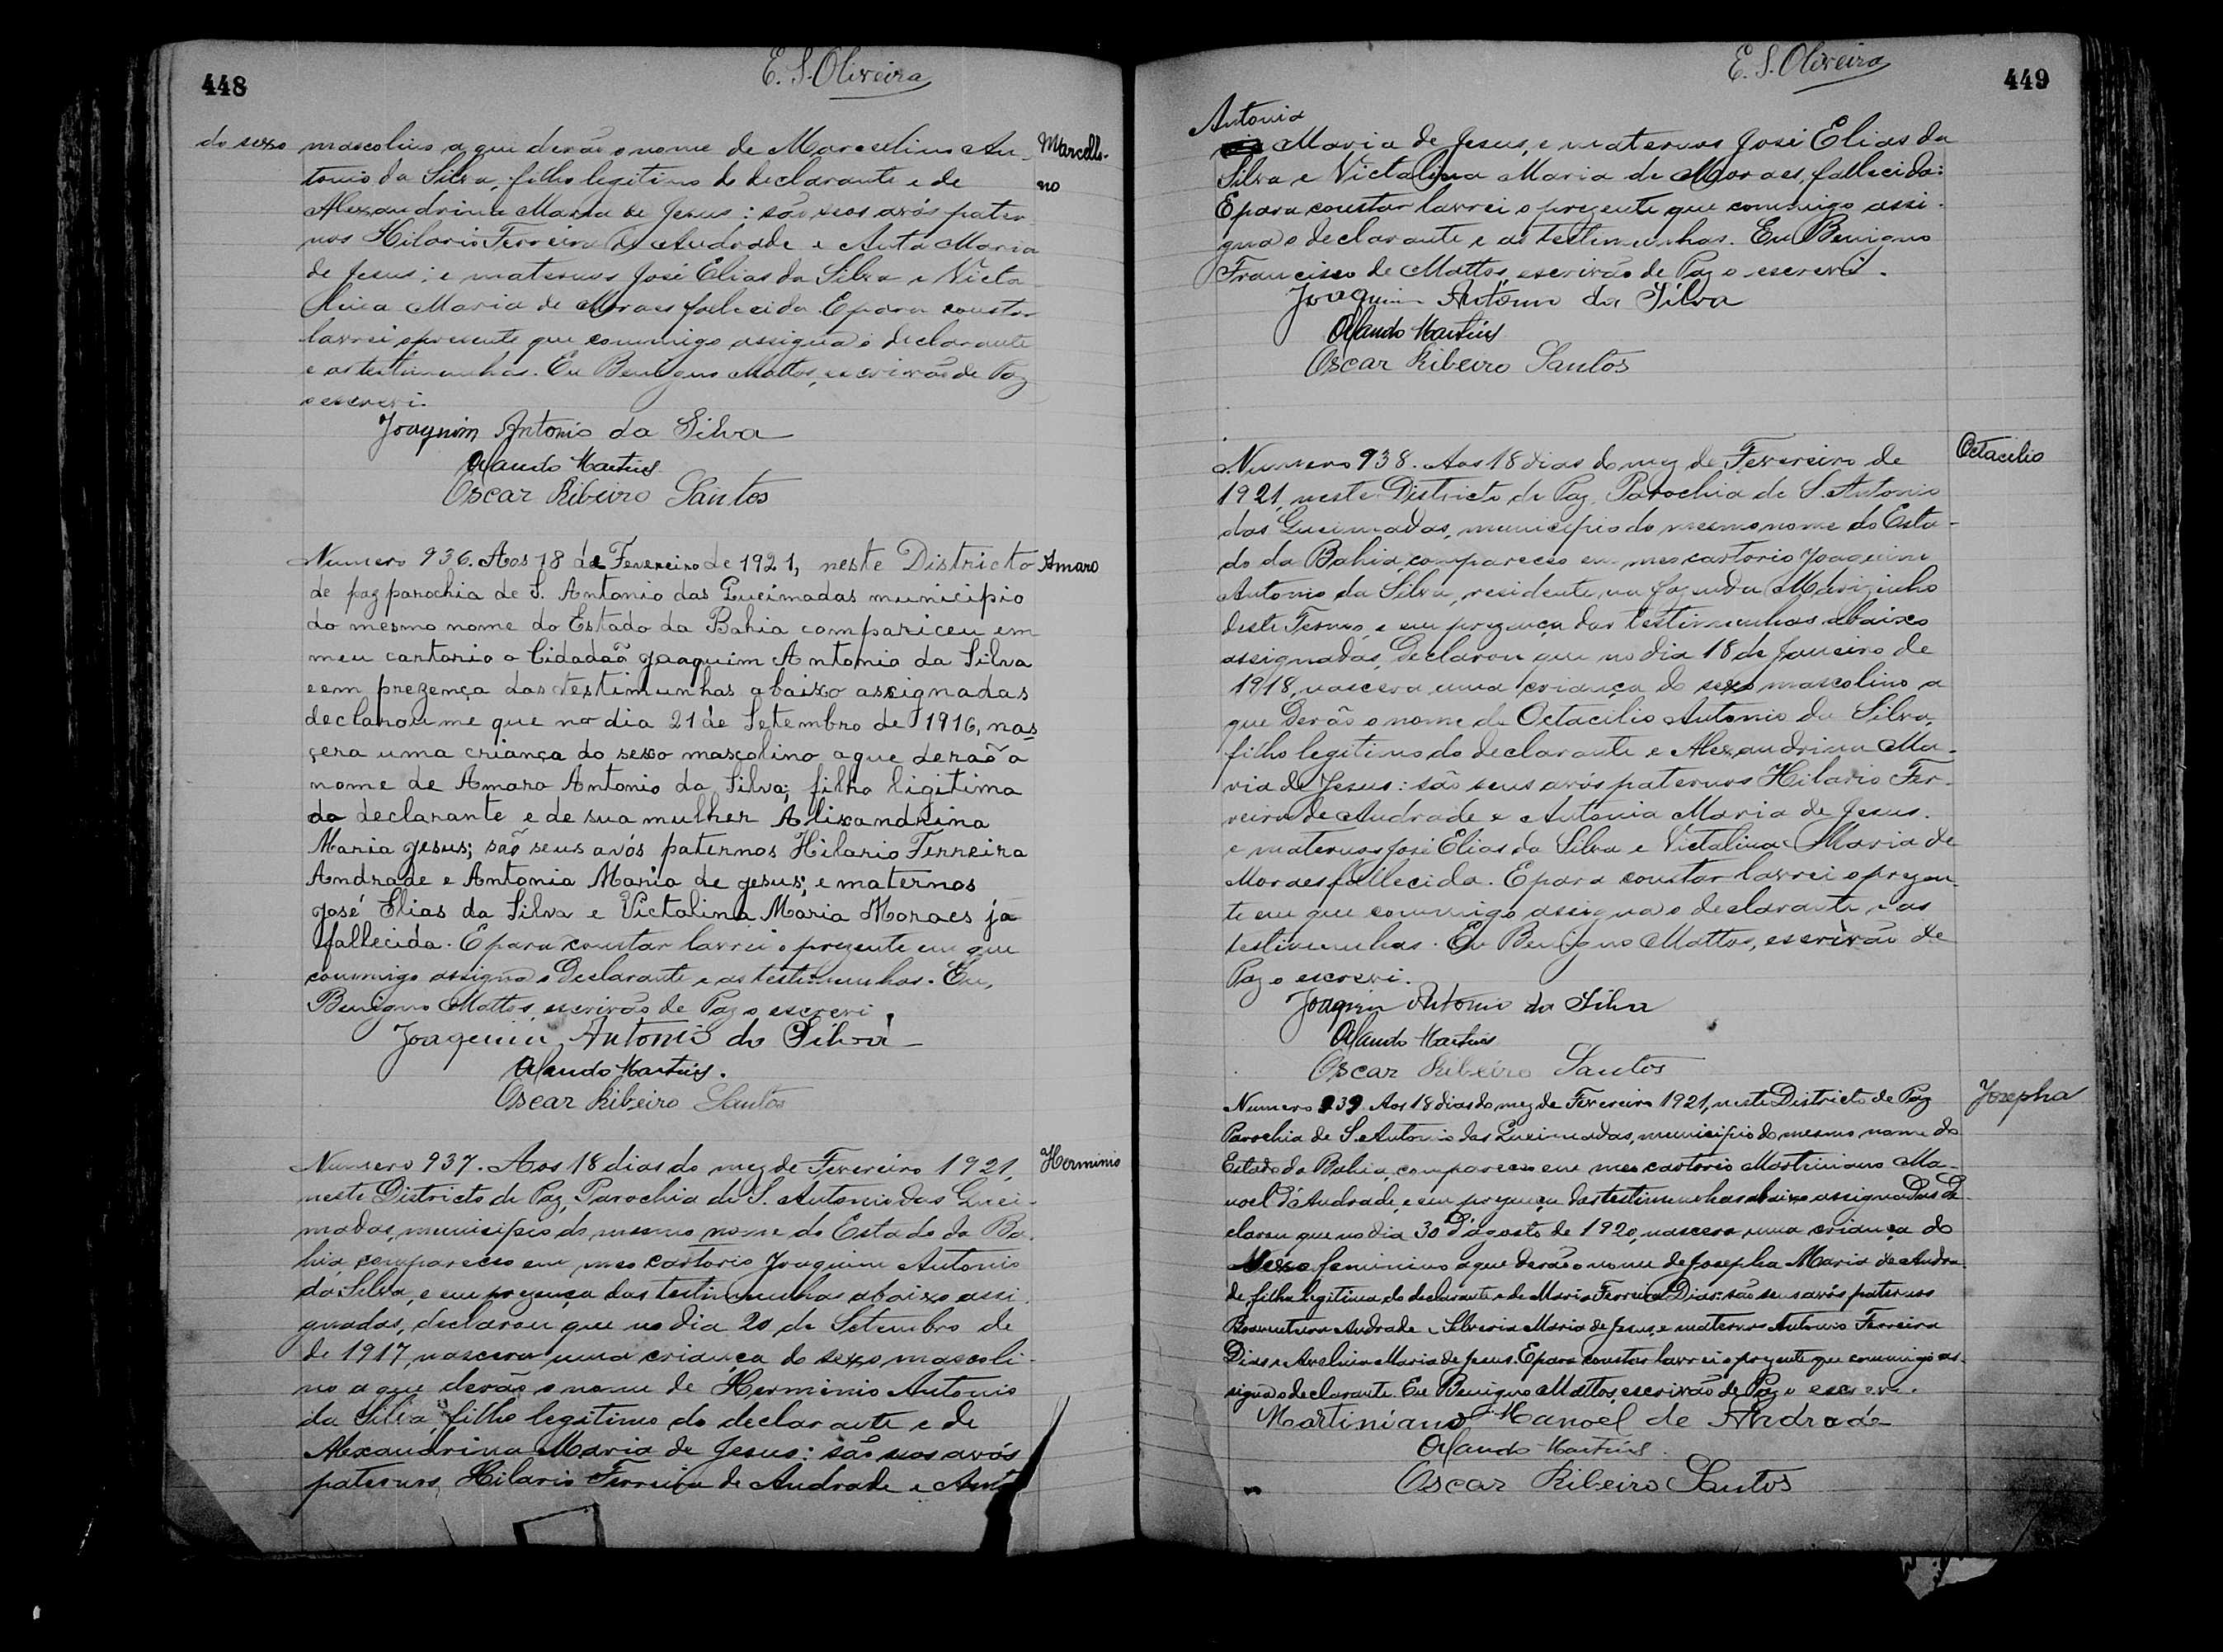 448
E. S. Oliveira
do sexo mascolino a que derão o nome de Marcelino An-
Marcelli-
no
tonio da Silva, filho legitimo do declarante e de
Alexandrina Maria de Jesus: são seos avós pater
nos Hilario Ferreira de Andrade e Anta Maria
de Jesus; e maternos José Elias da Silva e Victa
lina Maria de Moraes fallecida. E para constar
lavrei o presente que commigo assigna o declarante
e as testimunhas. Eu Benigno Mattos, escrivão de Paz
o escrevi.
Joaquim Antonio da Silva
Orlando Martins
Oscar Ribeiro Santos
Numero 936. Aos 18 de Fevereiro de 1921, neste Districto
Amaro
de paz parochia de S. Antonio das Queimadas municipio
do mesmo nome do Estado da Bahia compariceu em
meu cartorio o Cidadaõ Joaquim Antonio da Silva
e em prezença das testimunhas abaixo assignadas
declarou me que no dia 21 de Setembro de 1916, nas
çera uma criança do sexo mascolino a que deraõ o
nome de Amaro Antonio da Silva; filho ligitimo
do declarante e de sua mulher Alixandrina
Maria Jesus; saõ seus avós paternos Hilario Ferreira
Andrade e Antonia Maria de Jesus; e maternos
José Elias da Silva e Victalina Maria Moraes já
fallecida. E para constar lavrei o prezente em que
commigo assigna o Declarante e as testimunhas. Eu,
Benigno Mattos, escrivão de Paz o escrevi.
Joaquim Antonio da Silva
Orlando Martins.
Oscar Ribeiro Santos
Numero 937. Aos 18 dias do mez de Fevereiro 1921,
Herminio
neste Districto de Paz, Parochia de S. Antonio das Quei-
madas, municipio do mesmo nome do Estado da Ba
hia compareceo em meo cartorio Joaquim Antonio
da Silva, e em prezença das testimunhas abaixo assi
gnadas, declarou que no dia 20 de Setembro de
de 1917, nascera uma criança do sexo mascoli-
no a que derão o nome de Herminio Antonio
da Silva, filho legitimo do declarante e de
Alexandrina Maria de Jesus: são seos avós
paternos, Hilario Ferreira de Andrade e Ant
E. S. Oliveira
449
Antonia
Maria de Jesus, e maternos José Elias da
Silva e Victalina Maria de Moraes, fallecida:
E para constar lavrei o prezente que commigo assi-
gna o declarante e as testimunhas. Eu Benigno
Francisco de Mattos, escrivão de Paz o escrevi.
Joaquim Antonio da Silva
Orlando Martins
Oscar Ribeiro Santos
Numero 938. Aos 18 dias do mez de Fevereiro de
Octacilio
1921, neste Districto de Paz, Parochia de S. Antonio
das Queimadas, municipio do mesmo nome do Esta-
do da Bahia, compareceo em meo cartorio Joaquim
Antonio da Silva, residente na fazenda Marizinho
deste Termo, e em prezença das testimunhas abaixo
assignadas, Declarou que no dia 18 de Janeiro de
1918, nascera uma criança do sexo mascolino a
que Derão o nome de Octacilio Antonio da Silva,
filho legitimo do declarante e Alexandrina Ma-
ria de Jesus: são seus avós paternos Hilario Fer-
reira de Andrade e Antonia Maria de Jesus.
e maternos José Elias da Silva e Victalina Maria de
Moraes fallecida. E para constar lavrei o prezen-
te em que commigo assigna o declarante e as
testimunhas. Eu Benigno Mattos, escrivão de
Paz o escrevi.
Joaquim Antonio da Silva
Orlando Martins
Oscar Ribeiro Santos
Numero 939. Aos 18 dias do mez de Fevereiro 1921, neste Districto de Paz
Josepha
Parochia de S. Antonio das Queimadas, municipio do mesmo nome do
Estado da Bahia, compareceo em meo cartorio Martiniano Ma-
noel d'Andrade, e em prezença das testimunhas abaixo assignadas De
clarou que no dia 30 d'agosto de 1920, nascera uma criança do
sexo feminino a que derão o nome de Josepha Maria de Andra-
de, filha legitima do declarante e de Maria Ferreira Dias: são seus avós paternos
Boaventura Andrade e Silveria Maria de Jesus, e maternos Antonio Ferreira
Dias e Avelina Maria de Jesus. E para constar lavrei o prezente que commigo as-
signa o declarante. Eu Benigno Mattos, escrivão de Paz o escrevi.
Martiniano Manoel de Andrade
Orlando Martins.
Oscar Ribeiro Santos